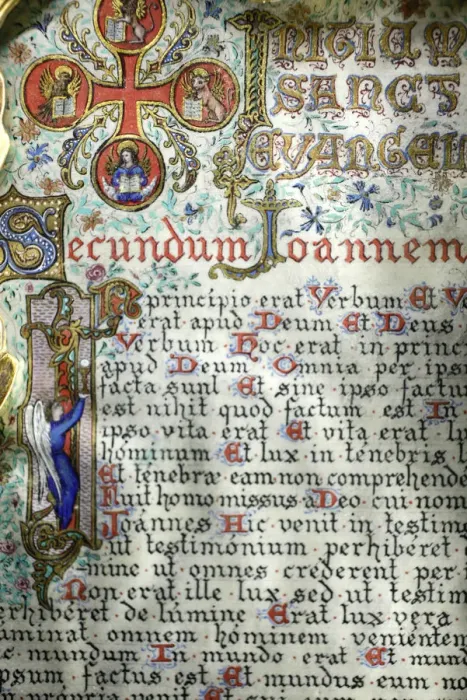 INITIUM
SANCT
EVANGEL
Secundum Joannem
In principio erat Verbum Et V
erat apud Deum Et Deus
Verbum Hoc erat in princ
apud Deum Omnia per ips
facta sunt Et sine ipso factu
est nihil quod factum est In
ipso vita erat Et vita erat lu
hóminum Et lux in ténebris l
Et ténebræ eam non comprehende
Fuit homo missus a Deo cui nom
Joannes Hic venit in testim
ut testimónium perhibéret
mine ut omnes créderent per
Non erat ille lux sed ut testim
erhibéret de lúmine Erat lux vera
uminat omnem hóminem venientem
c mundum In mundo erat Et mun
psum factus est Et mundus eum no
n própria venit Et sui eum non